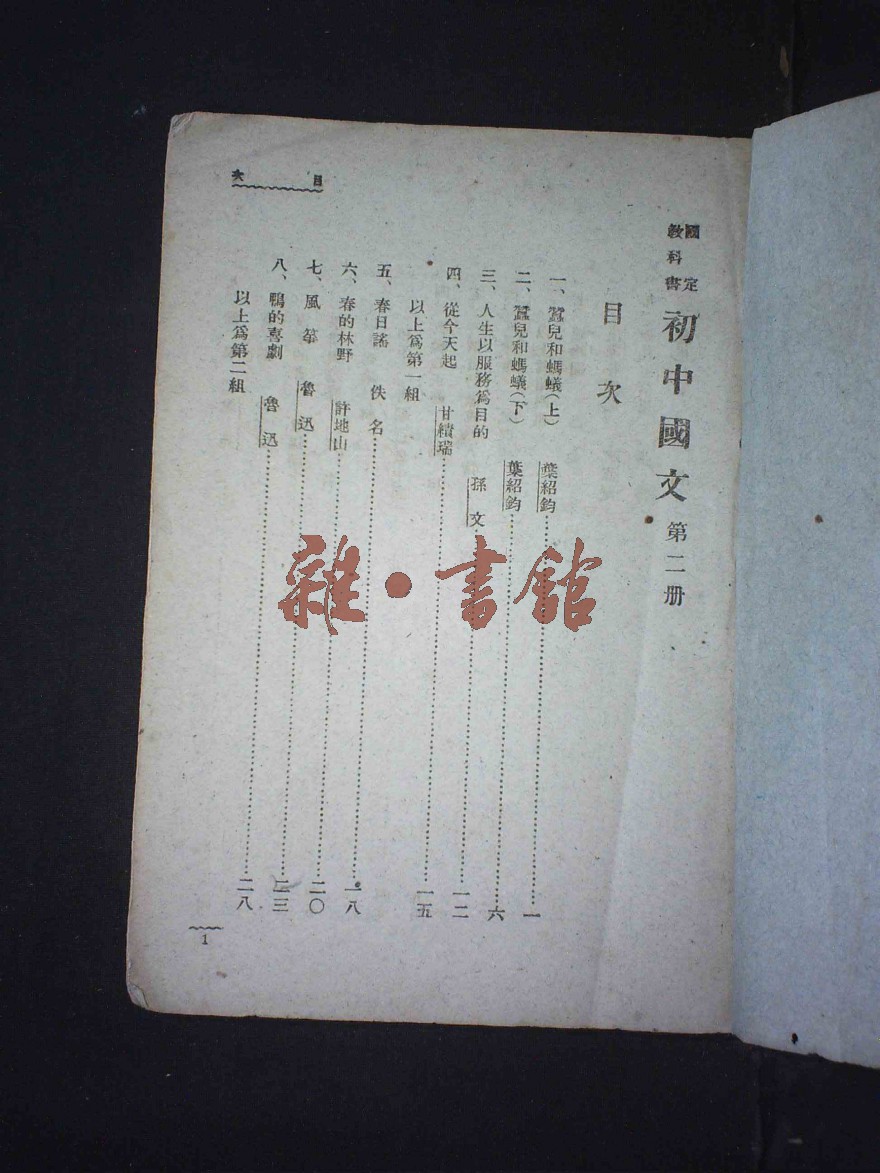 國定教科書 初中國文 第二册
目次
一、蠶兒和螞蟻(上) 葉紹鈞……一
二、蠶兒和螞蟻(下) 葉紹鈞……六
三、人生以服務爲目的 孫文……一二
四、從今天起 甘績瑞……一五
以上爲第一組
五、春日謠 佚名……一八
六、春的林野 許地山……二〇
七、風箏 魯迅……二三
八、鴨的喜劇 魯迅……二八
以上爲第二組
目次
1
雜·書館